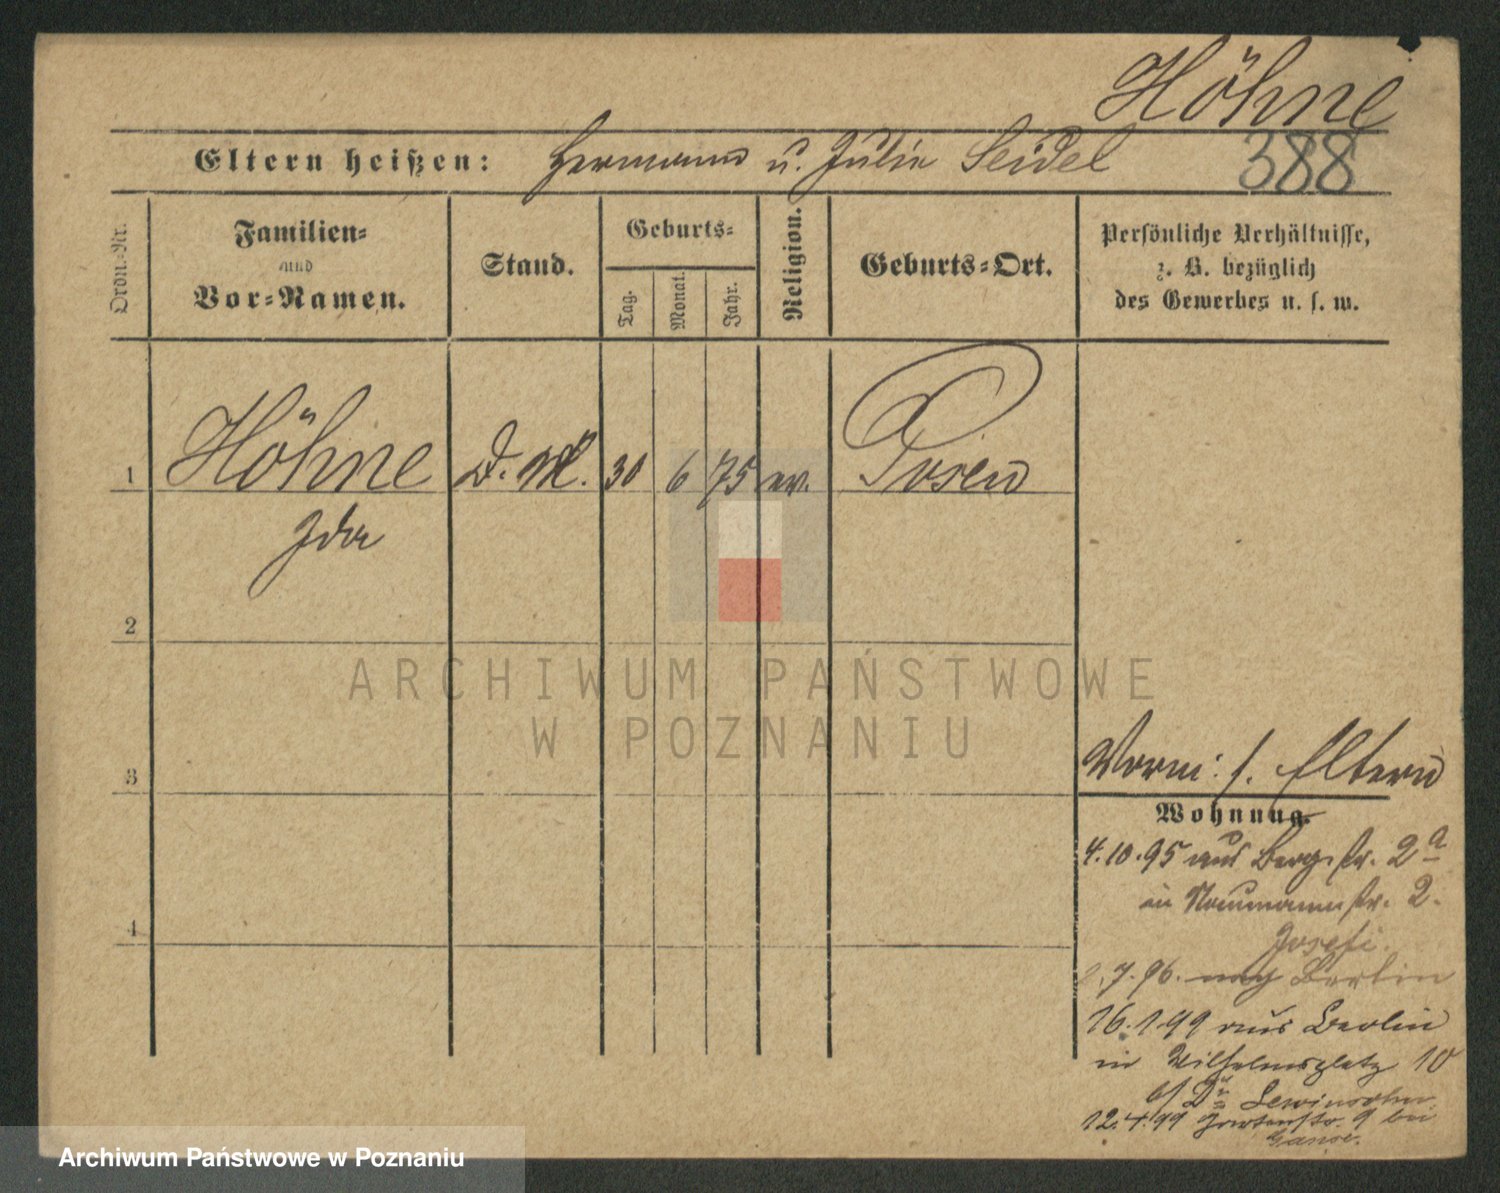 Höhne
Eltern heißen: Hermann u. Julie Seidel 388
Ordn.-Nr. Familien- und Vor-Namen. Stand. Geburts- Tag. Monat. Jahr. Religion. Geburts-Ort. Persönliche Verhältnisse, z. B. bezüglich des Gewerbes u. s. w.
1 Höhne D. M. 30 6 75 ev. Posen
Ida
2
3
4
Vorm: s. Eltern
Wohnung.
4.10.95 aus Bergstr. 2a
in Naumannstr. 2.
7.96. nach Berlin
16.1.99 aus Berlin
in Wilhelmsplatz 10
b/ Dr. Lewinsohn
12.4.99 Gartenstr. 9 bei
ARCHIWUM PAŃSTWOWE
W POZNANIU
Archiwum Państwowe w Poznaniu